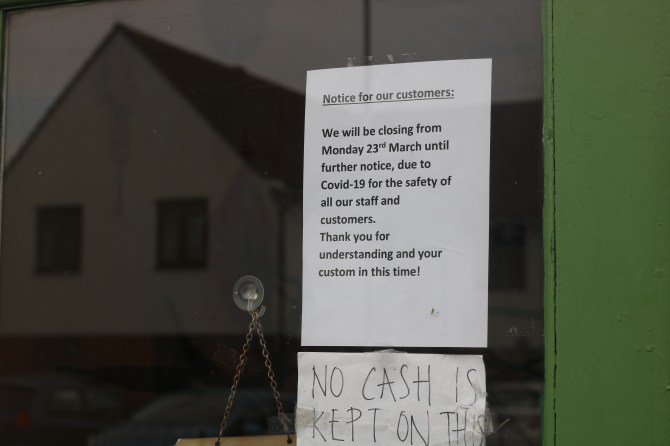 Notice for our customers:
We will be closing from
Monday 23rd March until
further notice, due to
Covid-19 for the safety of
all our staff and
customers.
Thank you for
understanding and your
custom in this time!
NO CASH IS
KEPT ON THIS